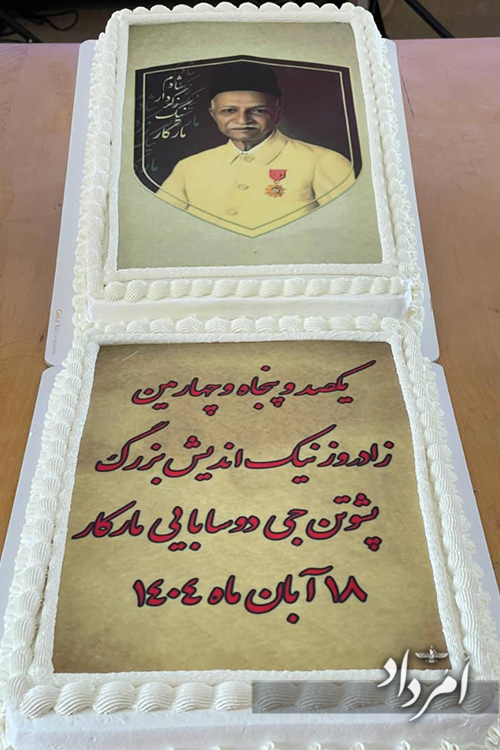 شادم
نیک
مارکار
یکصد و پنجاه و چهارمین
زادروز نیک اندیش بزرگ
پشوتن جی دوسابایی مارکار
۱۸ آبان ماه ۱۴۰۴
امرداد